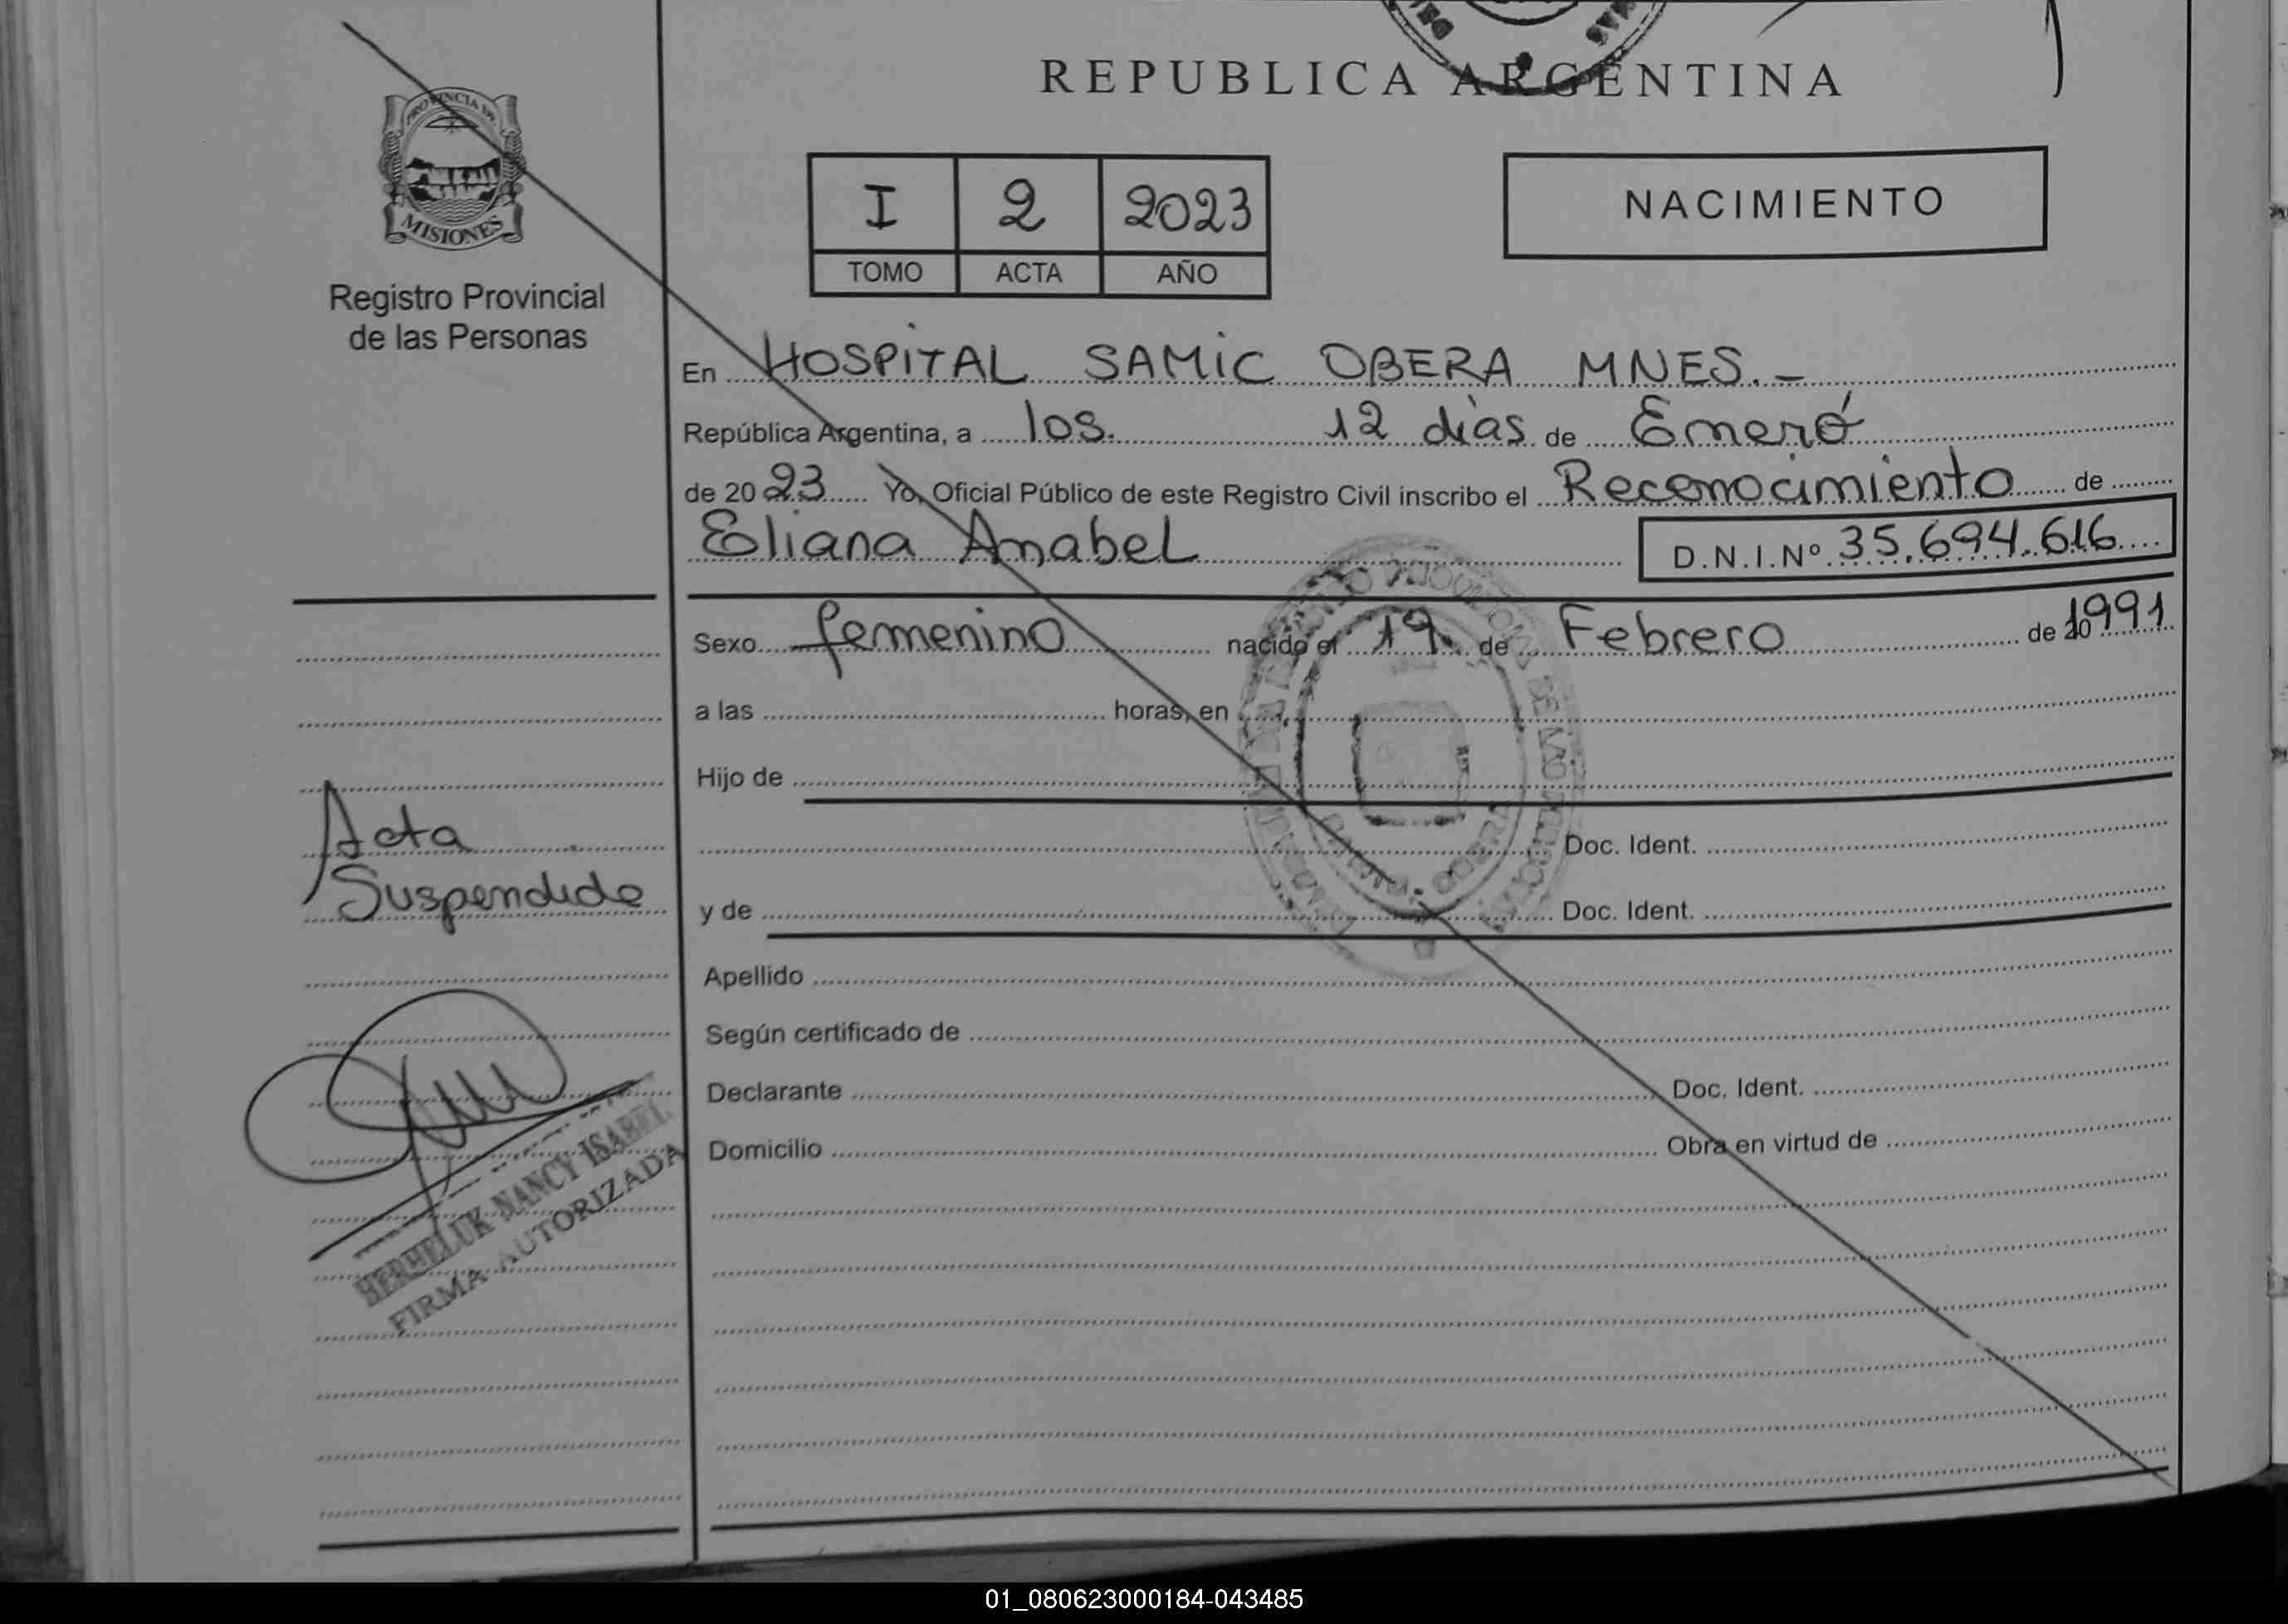 REPUBLICA ARGENTINA
PROVINCIA DE
MISIONES
Registro Provincial
de las Personas
I 2 2023
TOMO ACTA AÑO
NACIMIENTO
En HOSPITAL SAMIC OBERA MNES.-
República Argentina, a los. 12 días de Enero
de 2023 Yo, Oficial Público de este Registro Civil inscribo el Reconocimiento de
Eliana Anabel D.N.I.Nº 35.694.616
Sexo femenino nacido el 19 de Febrero de 20 1991
a las horas, en
Hijo de
Doc. Ident.
y de Doc. Ident.
Apellido
Según certificado de
Declarante Doc. Ident.
Domicilio Obra en virtud de
Acta
Suspendida
HERHELUK NANCY ISABEL
FIRMA AUTORIZADA
01_080623000184-043485